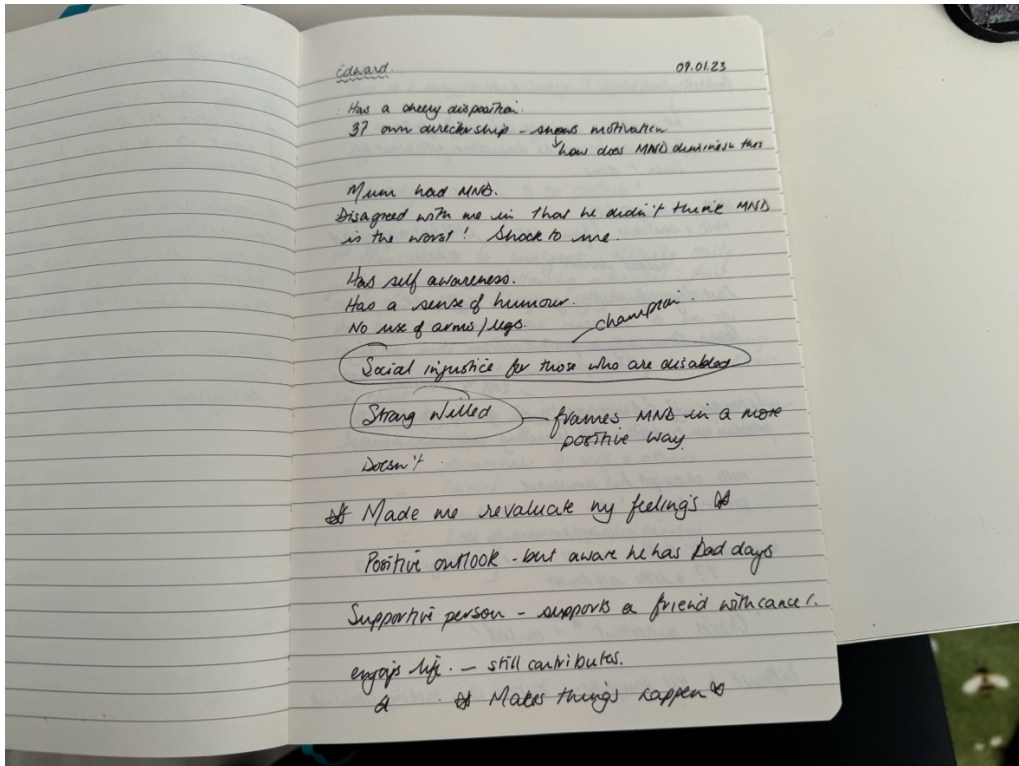 Edward. 09.01.23
Has a cheery disposition.
37 own directorship - shows motivation
how does MND diminish this
Mum had MND.
Disagreed with me in that he didn't think MND
is the worst! Shock to me.
Has self awareness.
Has a sense of humour.
No use of arms/legs.
champion.
Social injustice for those who are disabled
Strong Willed - frames MND in a more
positive way
Doesn't
Made me revaluate my feelings
Positive outlook - but aware he has bad days
Supportive person - supports a friend with cancer.
enjoys life. - still contributes.
& Makes things happen